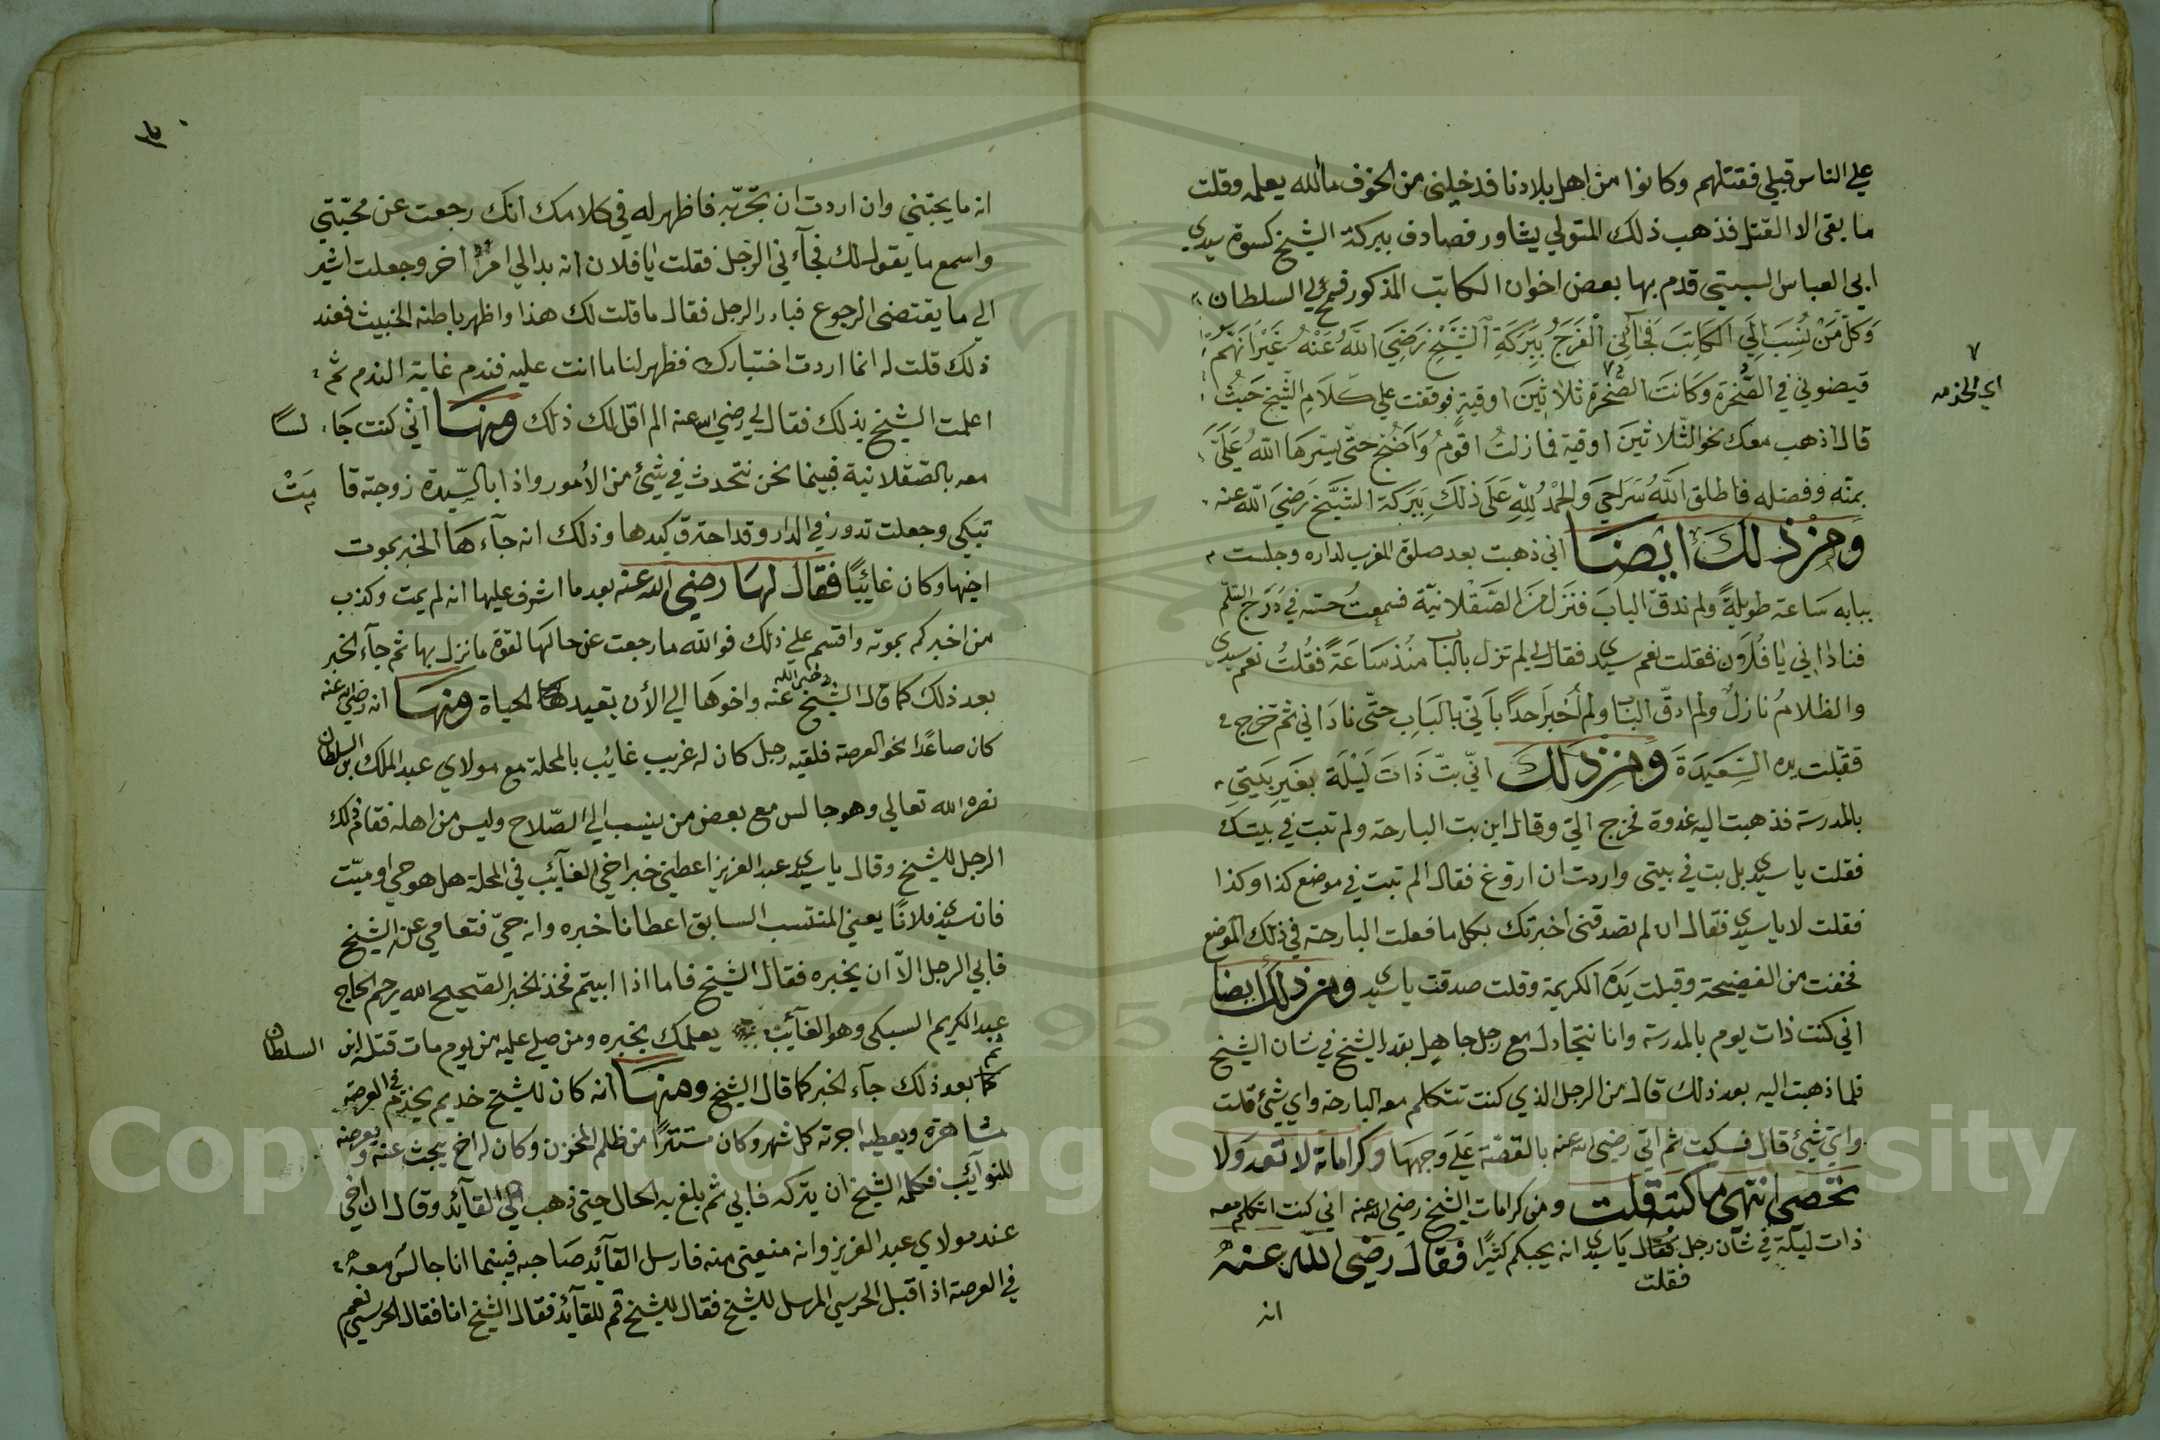 علي الناس قبلي فقتلهم وكانوا من اهل بلادنا فدخلني من الخوف ما لله يعلمه وقلت
ما بقى الا القتل فذهب ذلك المتولي يشاور فصادف ببركة الشيخ كسوة سيدي
ابي العباس السبتي قدم بها بعض اخوان الكاتب المذكور فسمح لي السلطان
وَكلّ مَنْ نُسِبَ اِلَي الكَاتِبَ فَجآئني الْفَرَجُ بِبَركَةِ الشَّيْخِ رَضِيَ اللَّهُ عَنْهُ غَيْرَ اَنَّهُمْ
قيضوني في الصُّخرة وَكَانَتَ الصُّخْرَة ثلاثينَ اوقية فوقفت علي كَلَامِ الشّيخ حَيثُ
٧
اي الخدمه
قال اذهب معك نحو الثّلاثينَ اوقية فما زلتُ اقومُ وَاَضُجّ حتّى يسّرهَا اللهُ عَلَيَّ
بمنّه وفضله فاطلق اللَّهُ سَراحِيَ والحَمْدُ لِلّهِ عَلَى ذلَكَ بِبَركة الشّيْخ رَضيَ اللّه عنه
وَمِنْ ذلَكَ ايضَا اني ذهبت بعد صلوة المغرب لداره وجلست
ببابه سَاعة طويلةً ولم ندقّ البابَ فنَزلَ منَ الصَّقْلَانيّة فسمعتُ حسّه في دَرَج السّلّم
فنادانِي يا فُلَان فقلت نعم سيدي فقال لي لم تزل بالباب منُذ سَاعَةً فقُلتُ نعم سيدي
والظلامُ نازلٌ ولم ادقّ الباب ولم اُخبر اَحدًا بأنّي بالبَابِ حتّى نادَاني ثم خرج
فقبّلت يده السَّعِيدَةَ وَمنْ ذَلكَ انّي بتّ ذَاتَ لَيْلَة بغَيرِ بَيْتِي
بالمدرسة فذهبت اليه غدوة فخرج اليّ وقال اين بت البارحة ولم تبت في بيتك
فقلت يا سيدي بل بت في بيتى واردت ان اروغ فقال الم تبت في موضع كذا وكذا
فقلت لا يا سيدي فقال ان لم تصدقنى اخبرتك بكل ما فعلت البارحة في ذلك الموضع
فخفت من الفضيحة وقبلت يَدَه الكريمة وقلت صدقت يا سيدي ومن ذلك ايضا
اني كنت ذات يوم بالمدرسة وانا نتجادل مع رجل جاهل بقدر الشيخ في شان الشيخ
فلما ذهبت اليه بعد ذلك قال من الرجل الذي كنت تتكلم معه البارحة واي شئ قلت
وايّ شيئ قال فسكت ثم اتي رضي الله عنه بالقصّة عَلَي وَجهِهَا وكراماته لا تعد وَلا
تحصى انتهي ما كتبه قلت ومن كرامات الشيخ رضي الله عنه اني كنت اتكلم معه
ذات ليلة في شأن رجل فقلت يَا سيدي انه يحبكم كثيرًا فقال رضي الله عنهُ
فقلت
انه
انه ما يحبّني وان اردت ان تجّربّه فاظهر له في كلامك انك رجعت عن محبّتي
واسمع ما يقول لك فجآءني الرّجل فقلت يا فلان انه بدا لي امرٌ اخر وجعلت اشير
الي ما يقتضى الرجوع فبادر الرجل فقال ما قلت لك هذا واظهر باطنه الخبيث فعند
ذلك قلت له انما اردت اختبارك فظهر لنا ما انت عليه فندم غاية الندم ثم
اعلمت الشيخ بذلك فقال لي رضي الله عنه الم اقل لك ذلك ومنهَا اني كنت جَالسًا
معه بالصّقلانية فبينما نحن نتحدث في شيئ من الأمور واذا بالسّيدة زوجته قامَتْ
تبكي وجعلت تدور في الدار وقد احترق كبدها وذلك انه جآءهَا الخبر بموت
اخيها وكان غائبًا فقال لهَا رضي الله عنه بعد ما اشرف عليها انه لم يمت وكذب
من اخبركم بموته واقسم علي ذلك فوالله ما رجعت عن حالهَا لقوة ما نزل بها ثم جآء الخبر
بعد ذلك كما قال الشيخ رضي الله عنه واخوهَا الي الأن بقيد الحياة ومنهَا انه رضي الله عنه
كان صاعدًا نحو العرصة فلقيه رجل كان له غريب غائب بالمحلة مع مولاي عبد الملك بن السلطان
نصره الله تعالي وهو جالس مع بعض من ينسب الي الصّلاح وليس من اهله فقام ذلك
الرجل للشيخ وقال يا سيدي عبد العزيز اعطني خبر اخي الغآئب في المحلة هل هو حي او ميّت
فان سيدي فلانًا يعني المنتسب السابق اعطانا خبره وانه حيّ فتعامي عنه الشيخ
فابي الرجل الاّ ان يخبره فقال الشيخ فاما اذا ابيتم فخذ الخبر الصّحيح الله يرحم الحاج
عبد الكريم السبكى وهو الغآئب يعلمك بخبره ومن صلي عليه من يوم مات قتله ابن السلطان
ثم بعد ذلك جآء الخبر كما قال الشيخ ومنهَا انه كان للشيخ خديم يخدم في العرصة
مشاهرة ويعطيه اجرته كل شهر وكان مستترًا من ظلم المخزن وكان له اخ يبحث عنه ويعرضه
للنوآئب فكلمه الشيخ ان يتركه فابي ثم بلغ به الحال حتى ذهب الي القآئد وقال ان اخي
عند مولاي عبد العزيز وانه منيعني منه فارسل القآئد صَاحبه فبينما انا جالس معه
في العرصة اذ اقبل الحرسي المرسل للشيخ فقال للشيخ قم للقآئد فقال الشيخ انا فقال الحرسي نعم
Copyright © King Saud University
1957